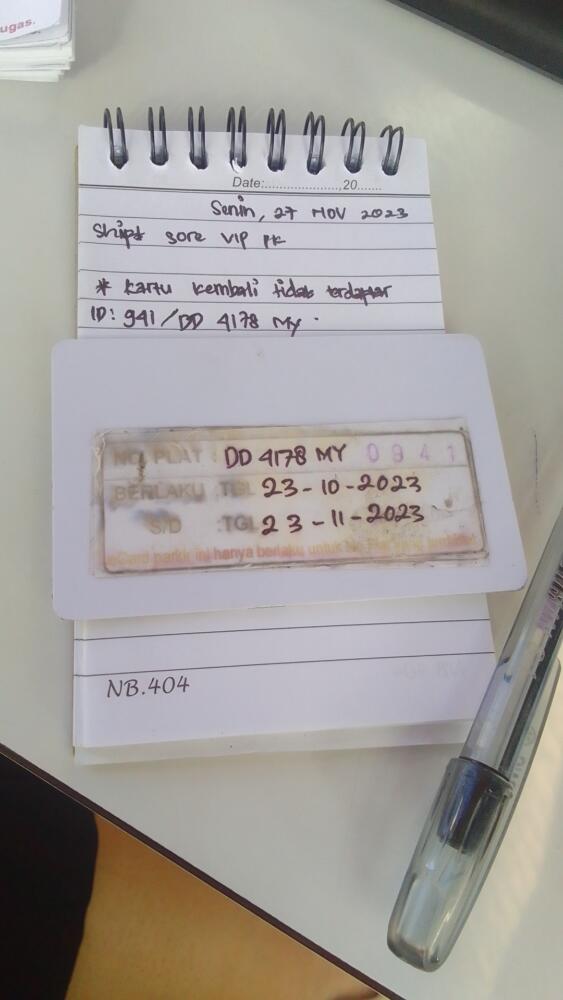 ugas.
Date:....................,20.......
Senin, 27 NOV 2023
Shipt sore VIP PK
* Kartu kembali tidak terdaptar
ID: 941/DD 4178 MY
NO. PLAT : DD 4178 MY 0941
BERLAKU :TGL 23-10-2023
S/D :TGL 23-11-2023
Card parkir ini hanya berlaku untuk No. Plat yang
NB.404